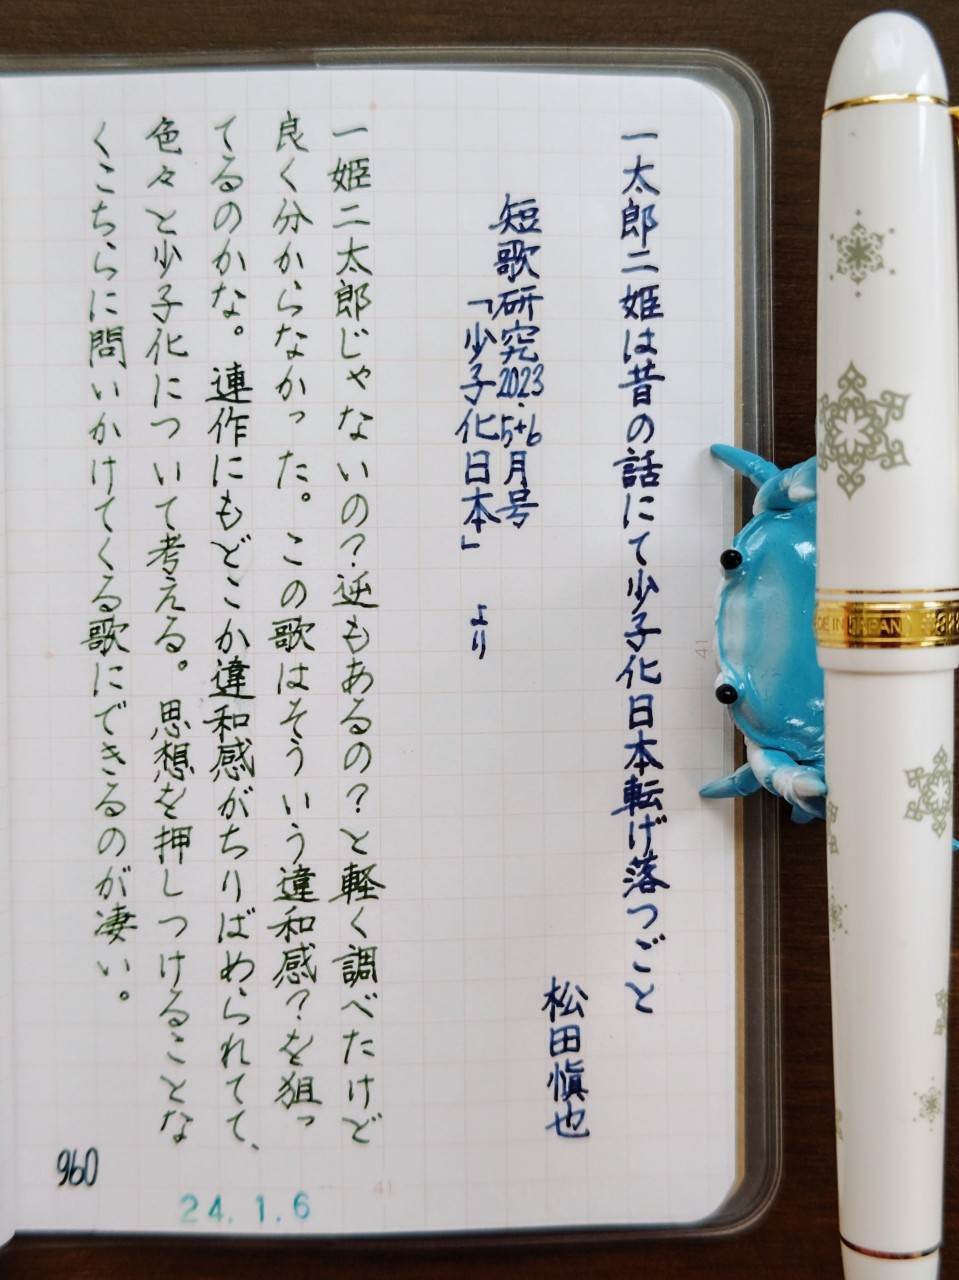 一太郎二姫は昔の話にて少子化日本転げ落つごと
松田慎也
短歌研究2023.5+6月号
「少子化日本」 より
一姫二太郎じゃないの?逆もあるの?と軽く調べたけど
良く分からなかった。この歌はそういう違和感?を狙っ
てるのかな。連作にもどこか違和感がちりばめられてて、
色々と少子化について考える。思想を押しつけることな
くこちらに問いかけてくる歌にできるのが凄い。
960
24.1.6
41
41
MADE IN JAPAN